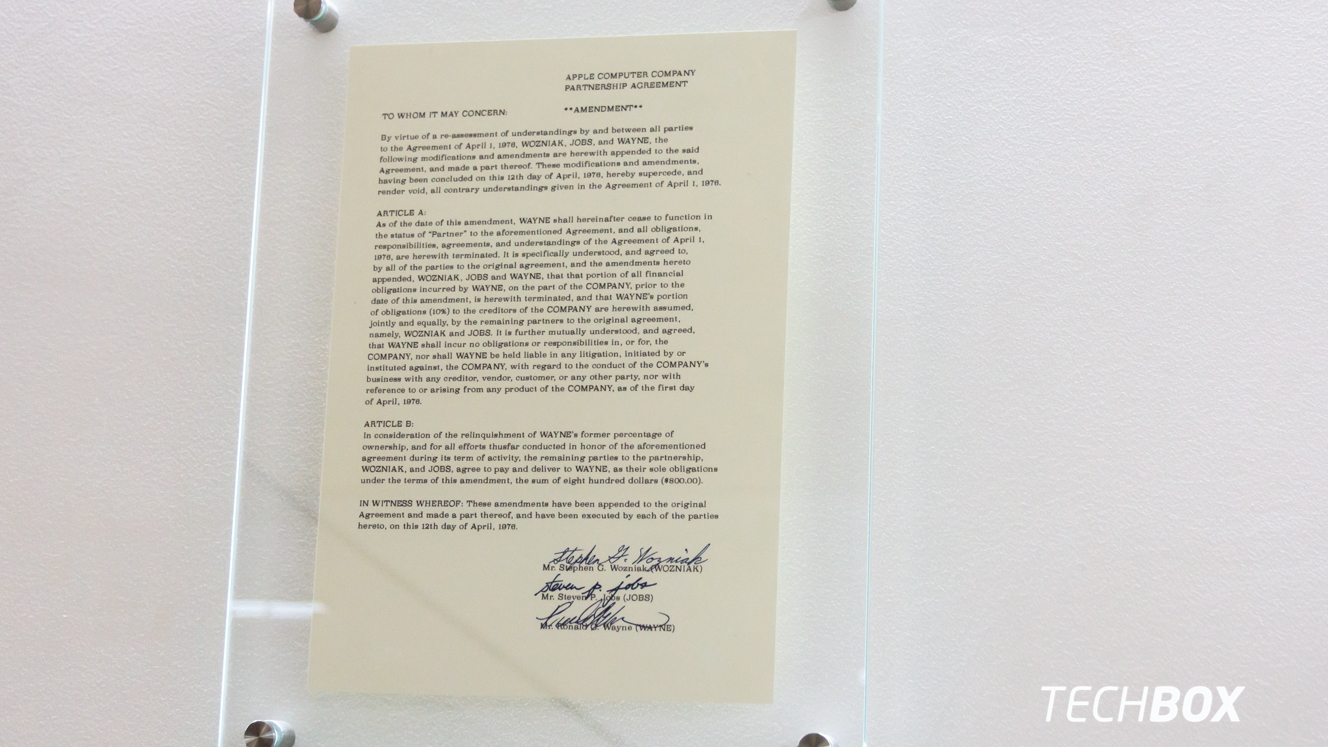 APPLE COMPUTER COMPANY
PARTNERSHIP AGREEMENT
**AMENDMENT**
TO WHOM IT MAY CONCERN:
By virtue of a re-assessment of understandings by and between all parties
to the Agreement of April 1, 1976, WOZNIAK, JOBS, and WAYNE, the
following modifications and amendments are herewith appended to the said
Agreement, and made a part thereof. These modifications and amendments,
having been concluded on this 12th day of April, 1976, hereby supercede, and
render void, all contrary understandings given in the Agreement of April 1, 1976.
ARTICLE A:
As of the date of this amendment, WAYNE shall hereinafter cease to function in
the status of "Partner" to the aforementioned Agreement, and all obligations,
responsibilities, agreements, and understandings of the Agreement of April 1,
1976, are herewith terminated. It is specifically understood, and agreed to,
by all of the parties to the original agreement, and the amendments hereto
appended, WOZNIAK, JOBS and WAYNE, that that portion of all financial
obligations incurred by WAYNE, on the part of the COMPANY, prior to the
date of this amendment, is herewith terminated, and that WAYNE's portion
of obligations (10%) to the creditors of the COMPANY are herewith assumed,
jointly and equally, by the remaining partners to the original agreement,
namely, WOZNIAK and JOBS. It is further mutually understood, and agreed,
that WAYNE shall incur no obligations or responsibilities in, or for, the
COMPANY, nor shall WAYNE be held liable in any litigation, initiated by or
instituted against, the COMPANY, with regard to the conduct of the COMPANY's
business with any creditor, vendor, customer, or any other party, nor with
reference to or arising from any product of the COMPANY, as of the first day
of April, 1976.
ARTICLE B:
In consideration of the relinquishment of WAYNE's former percentage of
ownership, and for all efforts thusfar conducted in honor of the aforementioned
agreement during its term of activity, the remaining parties to the partnership,
WOZNIAK, and JOBS, agree to pay and deliver to WAYNE, as their sole obligations
under the terms of this amendment, the sum of eight hundred dollars ($800.00).
IN WITNESS WHEREOF: These amendments have been appended to the original
Agreement and made a part thereof, and have been executed by each of the parties
hereto, on this 12th day of April, 1976.
Stephen G. Wozniak
Mr. Stephen G. Wozniak (WOZNIAK)
steven p. jobs
Mr. Steven P. Jobs (JOBS)
Mr. Ronald G. Wayne (WAYNE)
TECHBOX